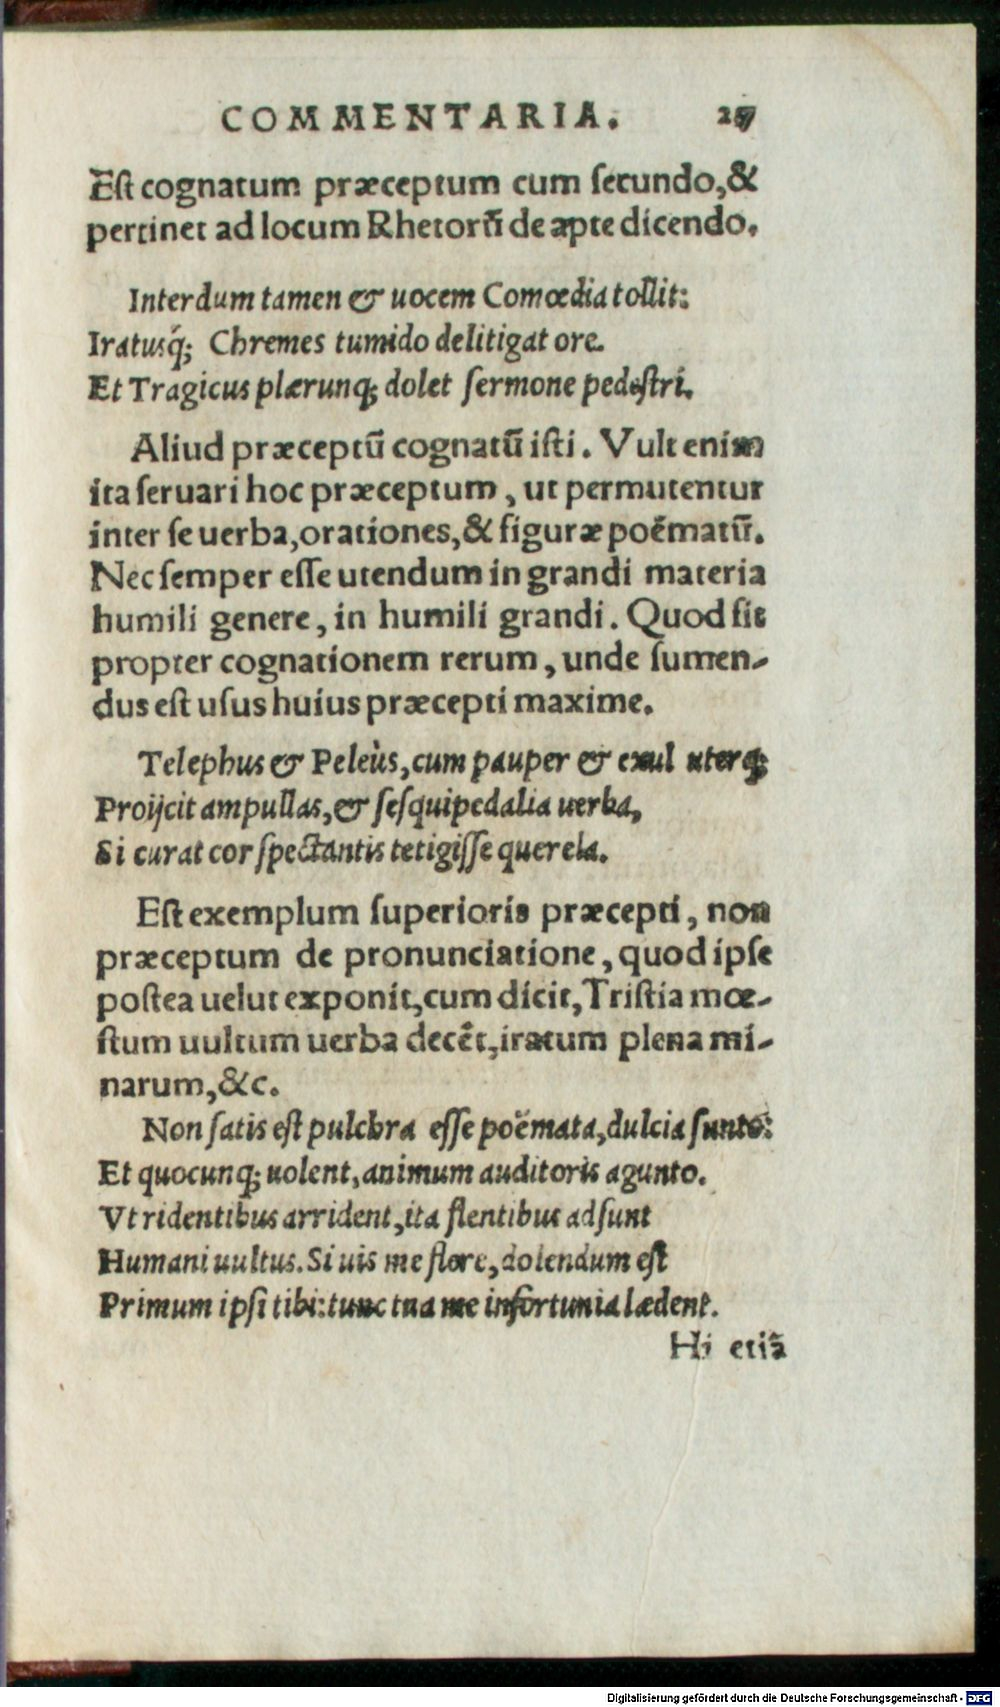 COMMENTARIA.
Est cognatum præceptum cum secundo, &
pertinet ad locum Rhetorũ de apte dicendo.
Interdum tamen & uocem Comœdia tollit:
Iratusq́; Chremes tumido delitigat ore.
Et Tragicus plærunq; dolet sermone pedestri.
Aliud præceptũ cognatũ isti. Vult enim
ita seruari hoc præceptum, ut permutentur
inter se uerba, orationes, & figuræ poëmatũ.
Nec semper esse utendum in grandi materia
humili genere, in humili grandi. Quod fit
propter cognationem rerum, unde sumen-
dus est usus huius præcepti maxime.
Telephus & Peleùs, cum pauper & exul uterq;
Proijcit ampullas, & sesquipedalia uerba,
Si curat cor spectantis tetigisse querela.
Est exemplum superioris præcepti, non
præceptum de pronunciatione, quod ipse
postea uelut exponit, cum dicit, Tristia mœ-
stum uultum uerba decẽt, iratum plena mi-
narum, &c.
Non satis est pulchra esse poëmata, dulcia sunto:
Et quocunq; uolent, animum auditoris agunto.
Vt ridentibus arrident, ita flentibus adsunt
Humani uultus. Si uis me flere, dolendum est
Primum ipsi tibi: tunc tua me infortunia lædent.
Hi etiã
Digitalisierung gefördert durch die Deutsche Forschungsgemeinschaft - DFG